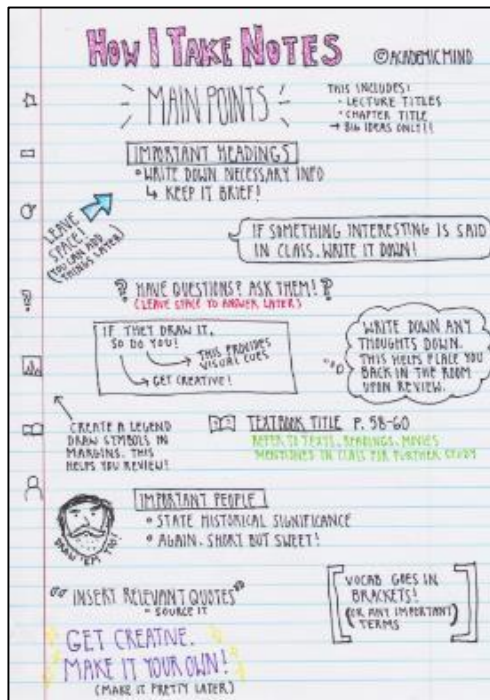 HOW I TAKE NOTES
©ACADEMICMIND
MAIN POINTS
THIS INCLUDES:
• LECTURE TITLES
• CHAPTER TITLE
→ BIG IDEAS ONLY!!
IMPORTANT HEADINGS
• WRITE DOWN NECESSARY INFO
↳ KEEP IT BRIEF!
LEAVE
SPACE!
(YOU CAN ADD
THINGS LATER)
IF SOMETHING INTERESTING IS SAID
IN CLASS, WRITE IT DOWN!
? HAVE QUESTIONS? ASK THEM! ?
(LEAVE SPACE TO ANSWER LATER)
?
IF THEY DRAW IT,
SO DO YOU!
THIS PROVIDES
VISUAL CUES
→ GET CREATIVE!
WRITE DOWN ANY
THOUGHTS DOWN.
THIS HELPS PLACE YOU
BACK IN THE ROOM
UPON REVIEW.
CREATE A LEGEND
DRAW SYMBOLS IN
MARGINS. THIS
HELPS YOU REVIEW!
TEXTBOOK TITLE P. 58-60
REFER TO TEXTS, READINGS, MOVIES
MENTIONED IN CLASS FOR FURTHER STUDY
IMPORTANT PEOPLE
• STATE HISTORICAL SIGNIFICANCE
• AGAIN, SHORT BUT SWEET!
DRAW 'EM TOO!
"INSERT RELEVANT QUOTES"
- SOURCE IT
[VOCAB GOES IN
BRACKETS!
(OR ANY IMPORTANT
TERMS)]
GET CREATIVE.
MAKE IT YOUR OWN!
(MAKE IT PRETTY LATER)